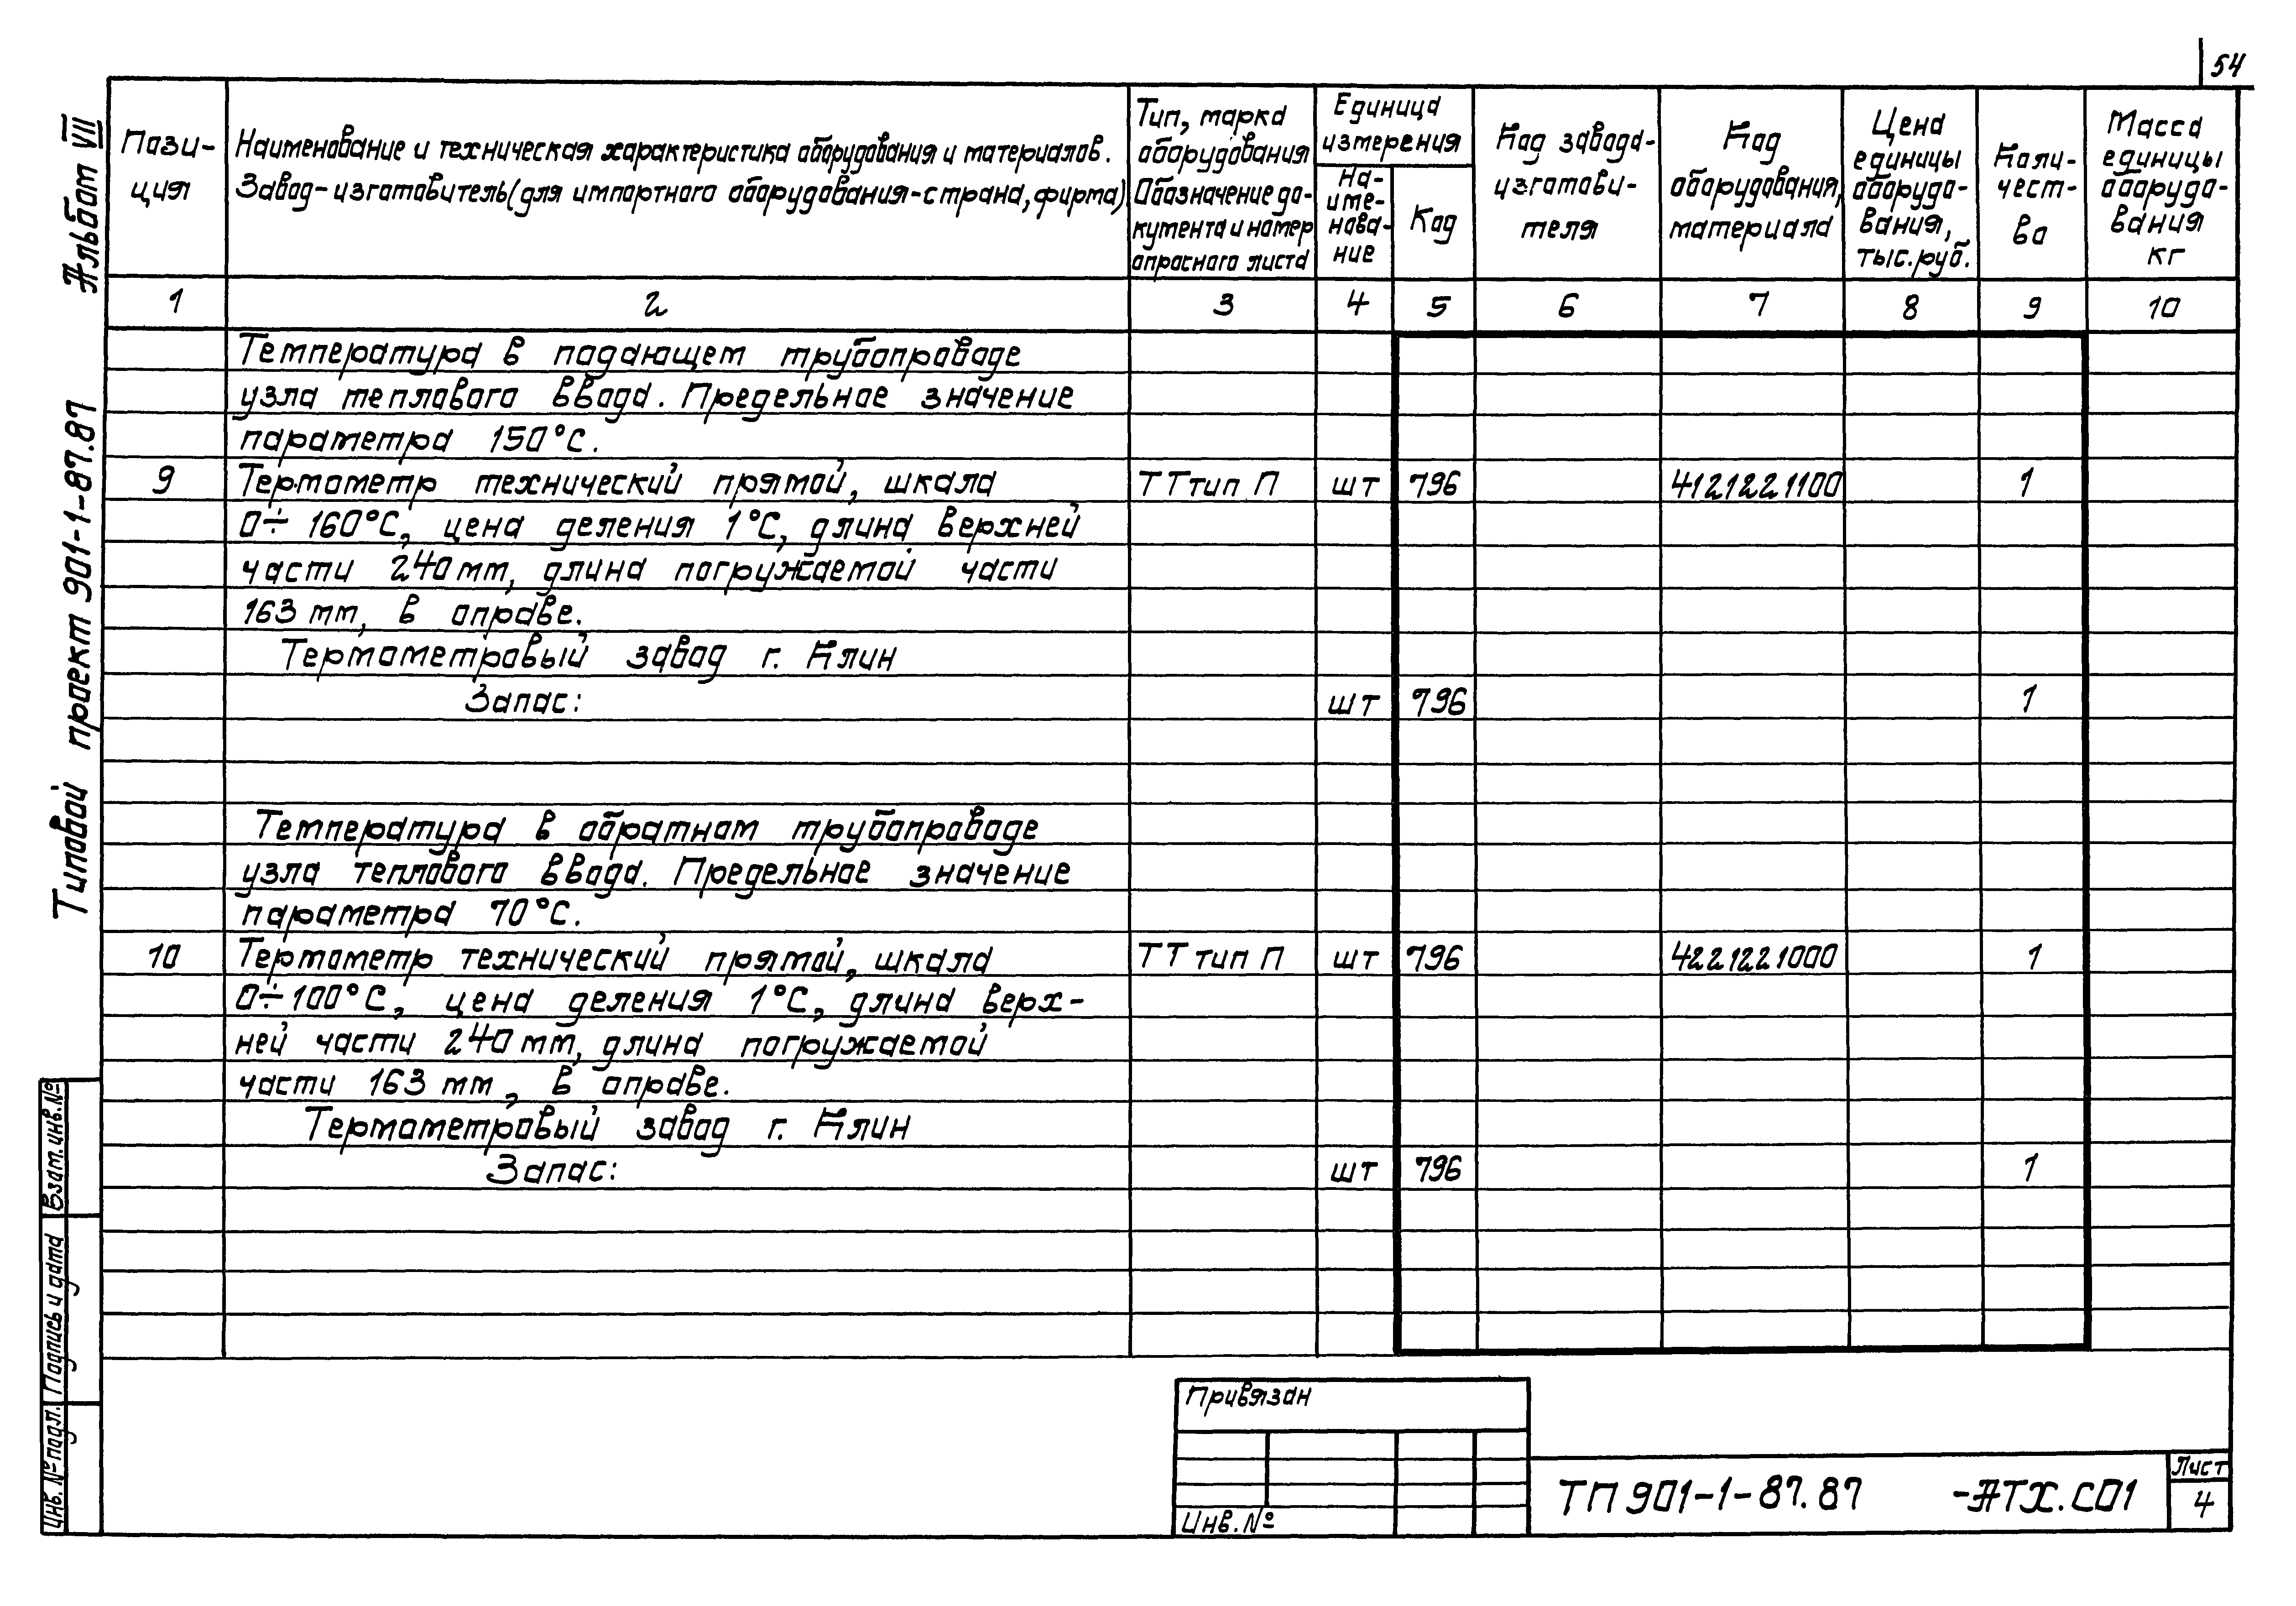 54
Альбом VII
Типовой проект 901-1-87.87
Взам. инв. №
Подпись и дата
Инв. № подл.
Пози-
ция
Наименование и техническая характеристика оборудования и материалов.
Завод-изготовитель (для импортного оборудования-страна, фирма)
Тип, марка
оборудования
Обозначение до-
кумента и номер
опросного листа
Единица
измерения
На-
име-
нова-
ние
Код
Код завода-
изготови-
теля
Код
оборудования,
материала
Цена
единицы
оборудо-
вания,
тыс. руб.
Коли-
чест-
во
Масса
единицы
оборудо-
вания
кг
1 2 3 4 5 6 7 8 9 10
Температура в подающем трубопроводе
узла теплового ввода. Предельное значение
параметра 150°С.
9 Термометр технический прямой, шкала ТТ тип П шт 796 4121221100 1
0÷160°С, цена деления 1°С, длина верхней
части 240 мм, длина погружаемой части
163 мм, в оправе.
Термометровый завод г. Клин
Запас: шт 796 1
Температура в обратном трубопроводе
узла теплового ввода. Предельное значение
параметра 70°С.
10 Термометр технический прямой, шкала ТТ тип П шт 796 4221221000 1
0÷100°С, цена деления 1°С, длина верх-
ней части 240 мм, длина погружаемой
части 163 мм, в оправе.
Термометровый завод г. Клин
Запас: шт 796 1
Привязан
Инв. №
ТП 901-1-87.87 -АТХ.СО1
Лист
4